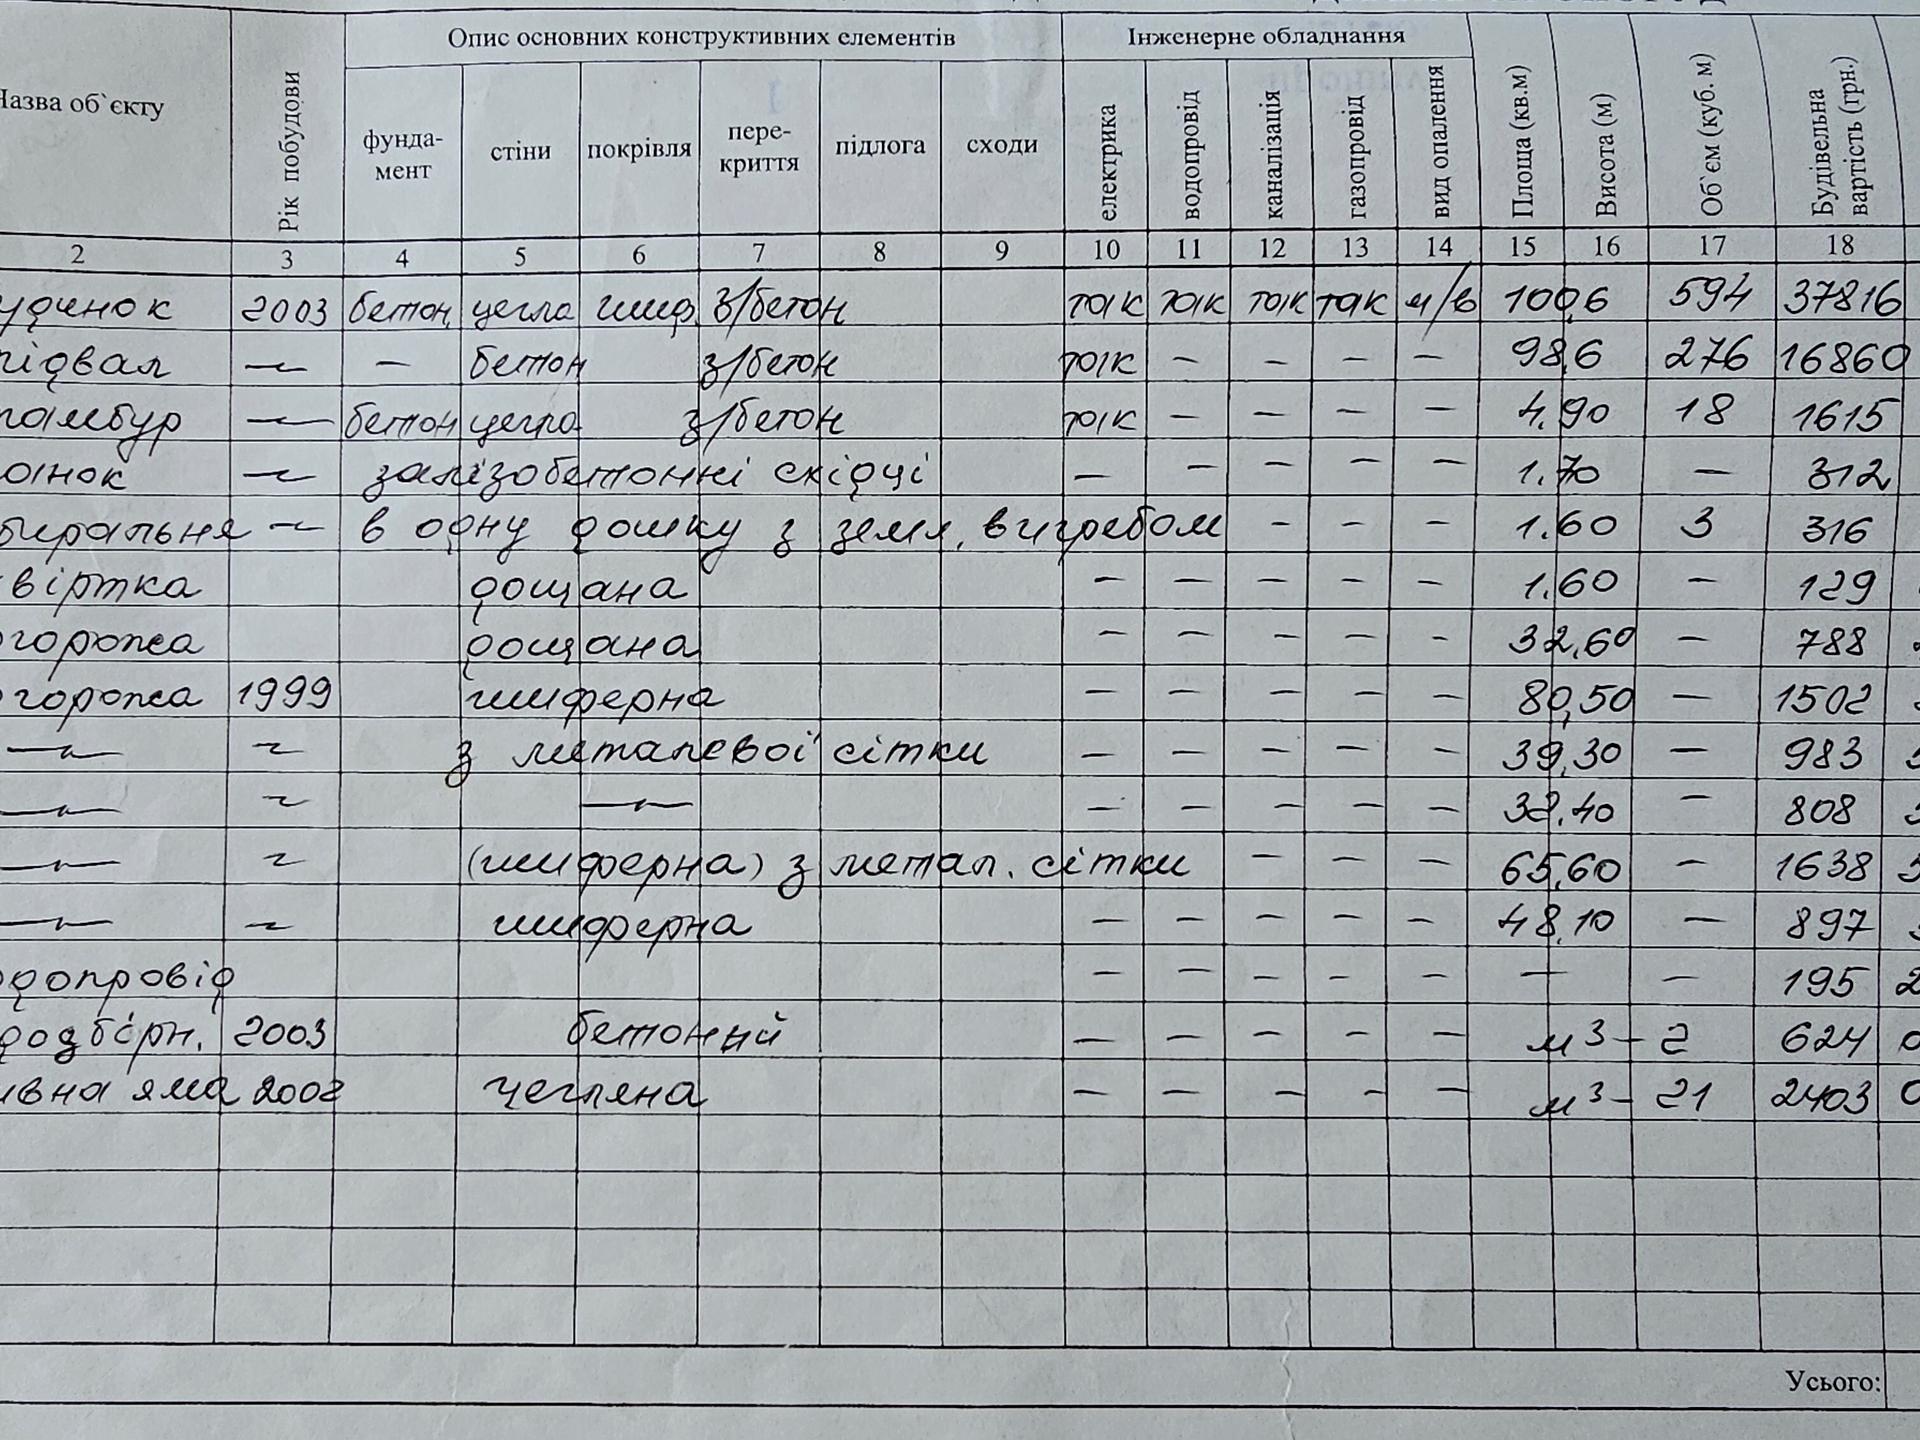 Опис основних конструктивних елементів Інженерне обладнання
Назва об`єкту Рік побудови фунда-мент стіни покрівля пере-криття підлога сходи електрика водопровід каналізація газопровід вид опалення Площа (кв.м) Висота (м) Об`єм (куб. м) Будівельна вартість (грн.)
2 3 4 5 6 7 8 9 10 11 12 13 14 15 16 17 18
удинок 2003 бетон, цегла шиф. з/бетон так так так так м/в 100,6 594 37816
підвал –~– – бетон з/бетон так – – – – 98,6 276 16860
тамбур –~– бетон цегла з/бетон так – – – – 4.90 18 1615
анок –~– залізобетонні східці – – – – – 1.70 – 312
биральня –~– в одну дошку з земл. вигребом – – – 1.60 3 316
віртка дощана – – – – – 1.60 – 129
огорожа дощана – – – – – 32,60 – 788
огорожа 1999 шиферна – – – – – 80,50 – 1502
–~– ~ з металевої сітки – – – – – 39,30 – 983
–~– ~ –~– – – – – – 32,40 – 808
–~– ~ (шиферна) з метал. сітки – – – 65,60 – 1638
–~– ~ шиферна – – – – – 48,10 – 897
одопровід – – – – – – – 195
2003 бетонний – – – – – м3 – 2 624
ивна яма 2002 цегляна – – – – – м3 – 21 2403
Усього: